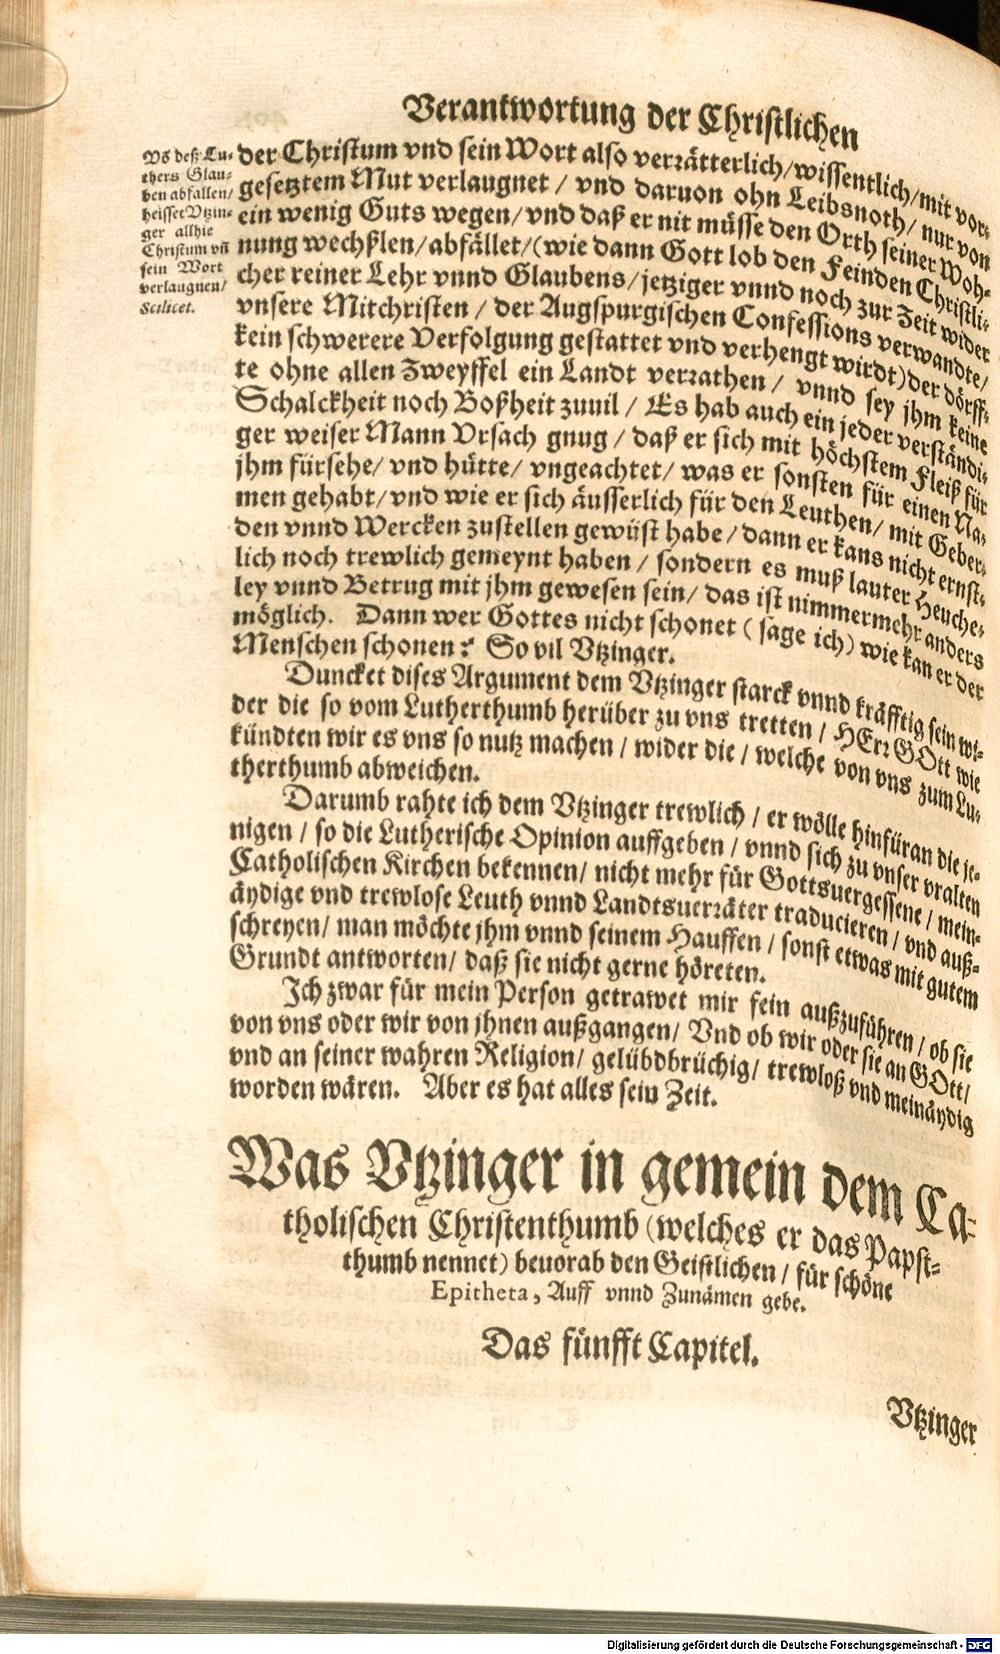 Verantwortung der Christlichen
Wo deß Lu-
thers Glau-
ben abfallen/
heisset Vtzin-
ger allhie
Christum vñ
sein Wort
verlaugnen/
Scilicet.
der Christum vnd sein Wort also verrätterlich/wissentlich/mit vor-
gesetztem Mut verlaugnet / vnd daruon ohn Leibsnoth/ nur von
ein wenig Guts wegen/vnd daß er nit müsse den Orth seiner Woh-
nung wechßlen/abfället/(wie dann Gott lob den Feinden Christli-
cher reiner Lehr vnnd Glaubens/jetziger vnnd noch zur Zeit wider
vnsere Mitchristen / der Augspurgischen Confessions verwandte/
kein schwerere Verfolgung gestattet vnd verhengt wirdt)der dörff-
te ohne allen Zweyffel ein Landt verrathen / vnnd sey jhm keine
Schalckheit noch Boßheit zuuil / Es hab auch ein jeder verständi-
ger weiser Mann Vrsach gnug / daß er sich mit höchstem Fleiß für
jhm fürsehe/ vnd hütte/ vngeachtet/ was er sonsten für einen Na-
men gehabt/vnd wie er sich äusserlich für den Leuthen/ mit Geber-
den vnnd Wercken zustellen gewüst habe/dann er kans nicht ernst-
lich noch trewlich gemeynt haben / sondern es muß lauter Heuche-
ley vnnd Betrug mit jhm gewesen sein/ das ist nimmermehr anders
möglich. Dann wer Gottes nicht schonet ( sage ich) wie kan er der
Menschen schonen? So vil Vtzinger.
Duncket dises Argument dem Vtzinger starck vnnd kräfftig sein wi-
der die so vom Lutherthumb herüber zu vns tretten / HErr GOtt wie
kündten wir es vns so nutz machen / wider die / welche von vns zum Lu-
therthumb abweichen.
Darumb rahte ich dem Vtzinger trewlich / er wölle hinfüran die je-
nigen / so die Lutherische Opinion auffgeben / vnnd sich zu vnser vralten
Catholischen Kirchen bekennen/ nicht mehr für Gottsuergessene / mein-
äydige vnd trewlose Leuth vnnd Landtsuerräter traducieren / vnd auß-
schreyen/ man möchte jhm vnnd seinem Hauffen / sonst etwas mit gutem
Grundt antworten/ daß sie nicht gerne höreten.
Ich zwar für mein Person getrawet mir fein außzuführen / ob sie
von vns oder wir von jhnen außgangen/ Vnd ob wir oder sie an GOtt/
vnd an seiner wahren Religion/ gelübdbrüchig/ trewloß vnd meinäydig
worden wären. Aber es hat alles sein Zeit.
Was Vtzinger in gemein dem Ca-
tholischen Christenthumb (welches er das Papst-
thumb nennet) beuorab den Geistlichen / für schöne
Epitheta, Auff vnnd Zunämen gebe.
Das fünfft Capitel.
Vtzinger
Digitalisierung gefördert durch die Deutsche Forschungsgemeinschaft - DFG